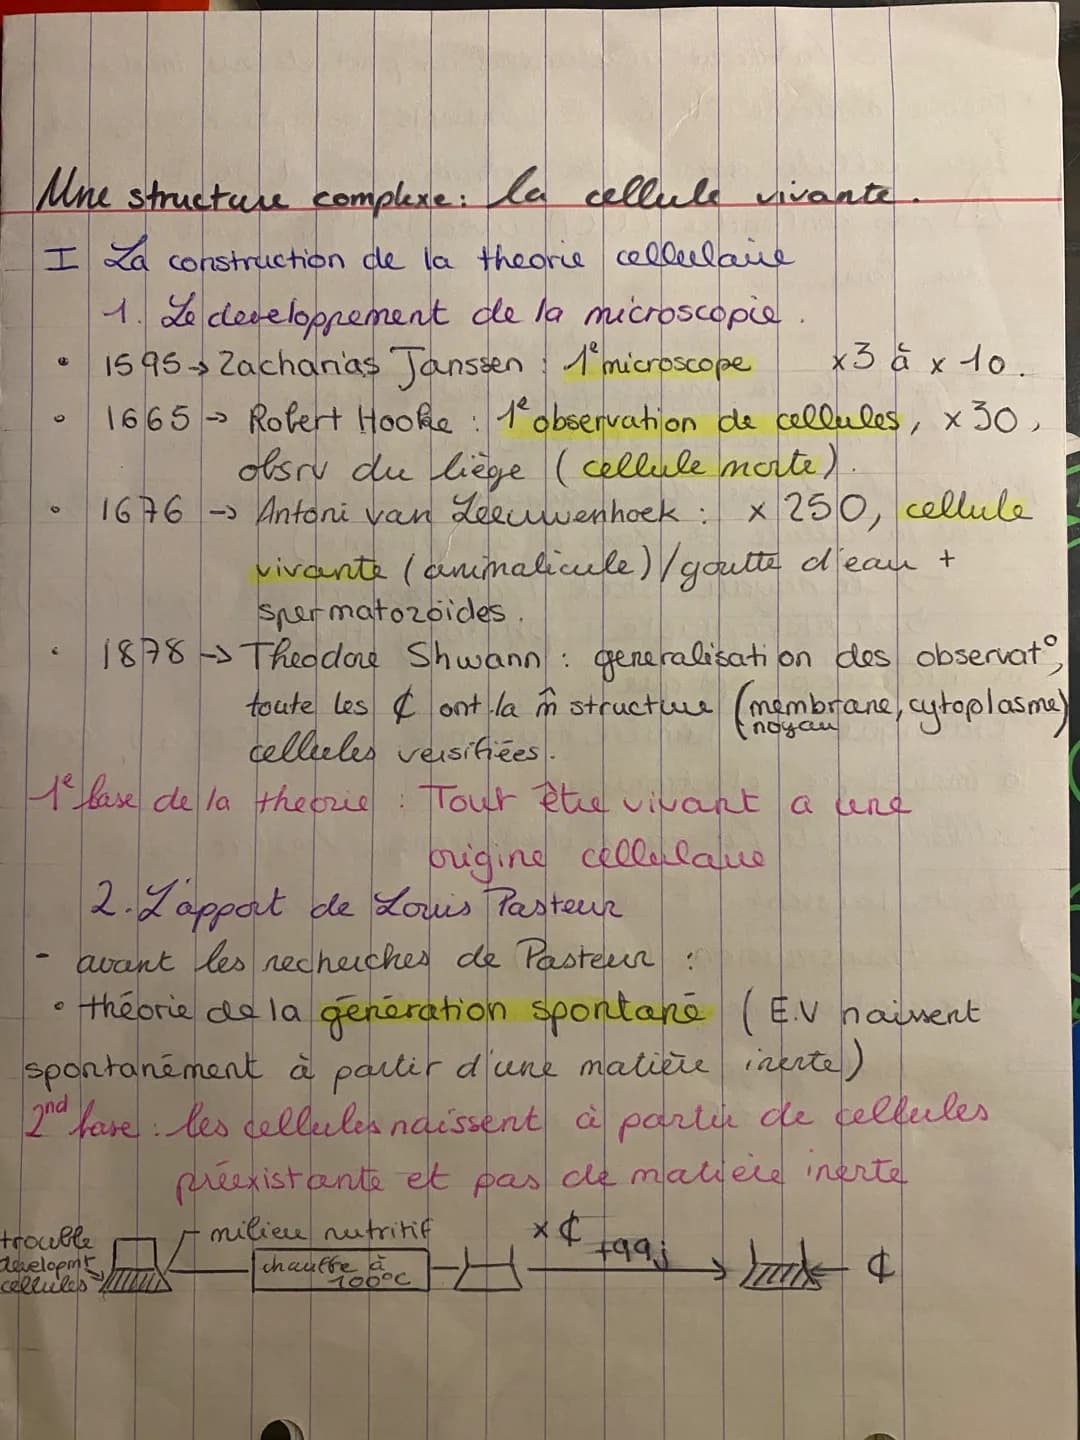 Une structure complexe : la cellule vivante.
I La construction de la theorie cellulaire
1. Le developpement de la microscopie.
• 1595 → Zacharias Janssen : 1e microscope x3 à x 10.
• 1665 → Robert Hooke : 1e observation de cellules, x 30,
obsrv du liège (cellule morte).
• 1676 → Antoni van Leeuwenhoek : x 250, cellule
vivante (animalicule) / goutte d'eau +
spermatozoïdes.
• 1878 → Theodore Shwann : generalisation des observat°,
toute les ₵ ont la m̂ structure (membrane, cytoplasme)
noyau
cellules versifiées.
1e base de la theorie : Tout être vivant a une
origine cellulaire
2. L'apport de Louis Pasteur
- avant les recherches de Pasteur :
• théorie de la génération spontané (E.V naissent
spontanément à partir d'une matière inerte)
2nd base : les cellules naissent à partir de cellules
préexistante et pas de matière inerte
trouble
developmt
cellules
milieu nutritif
chauffe à
100°C
x ₵
+qqj
₵